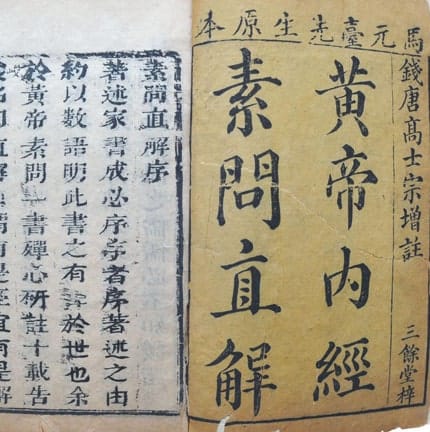 馬元臺先生原本
錢唐髙士宗增註
黃帝內經
素問直解
三餘堂梓
素問直解序
著述家書成必序序者序著述之由
約以數語明此書之有於世也余
於黃帝素問一書殫心研註十載告
直解有是經宜有是解